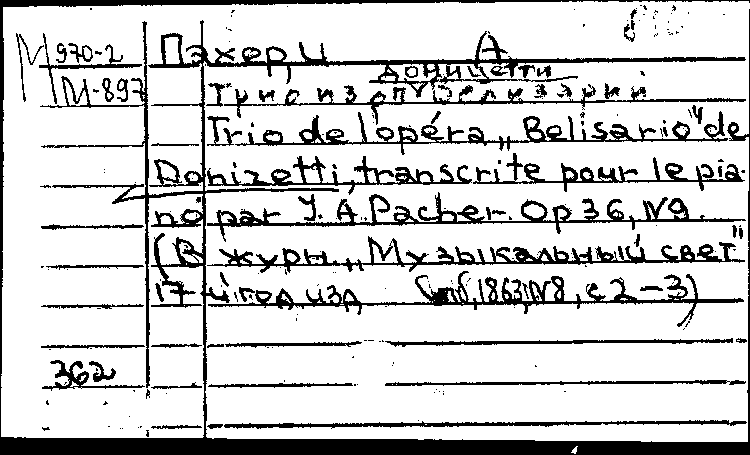 М 970-2
М-897
Пахер, И А
Доницетти
Трио из оп "Велизарий"
Trio de l'opéra „Belisario" de
Donizetti, transcrite pour le pia-
no par J. A. Pacher. Op 36, N9.
(В журн. „Музыкальный свет"
17-й год изд Спб, 1863, N8, с 2-3)
362